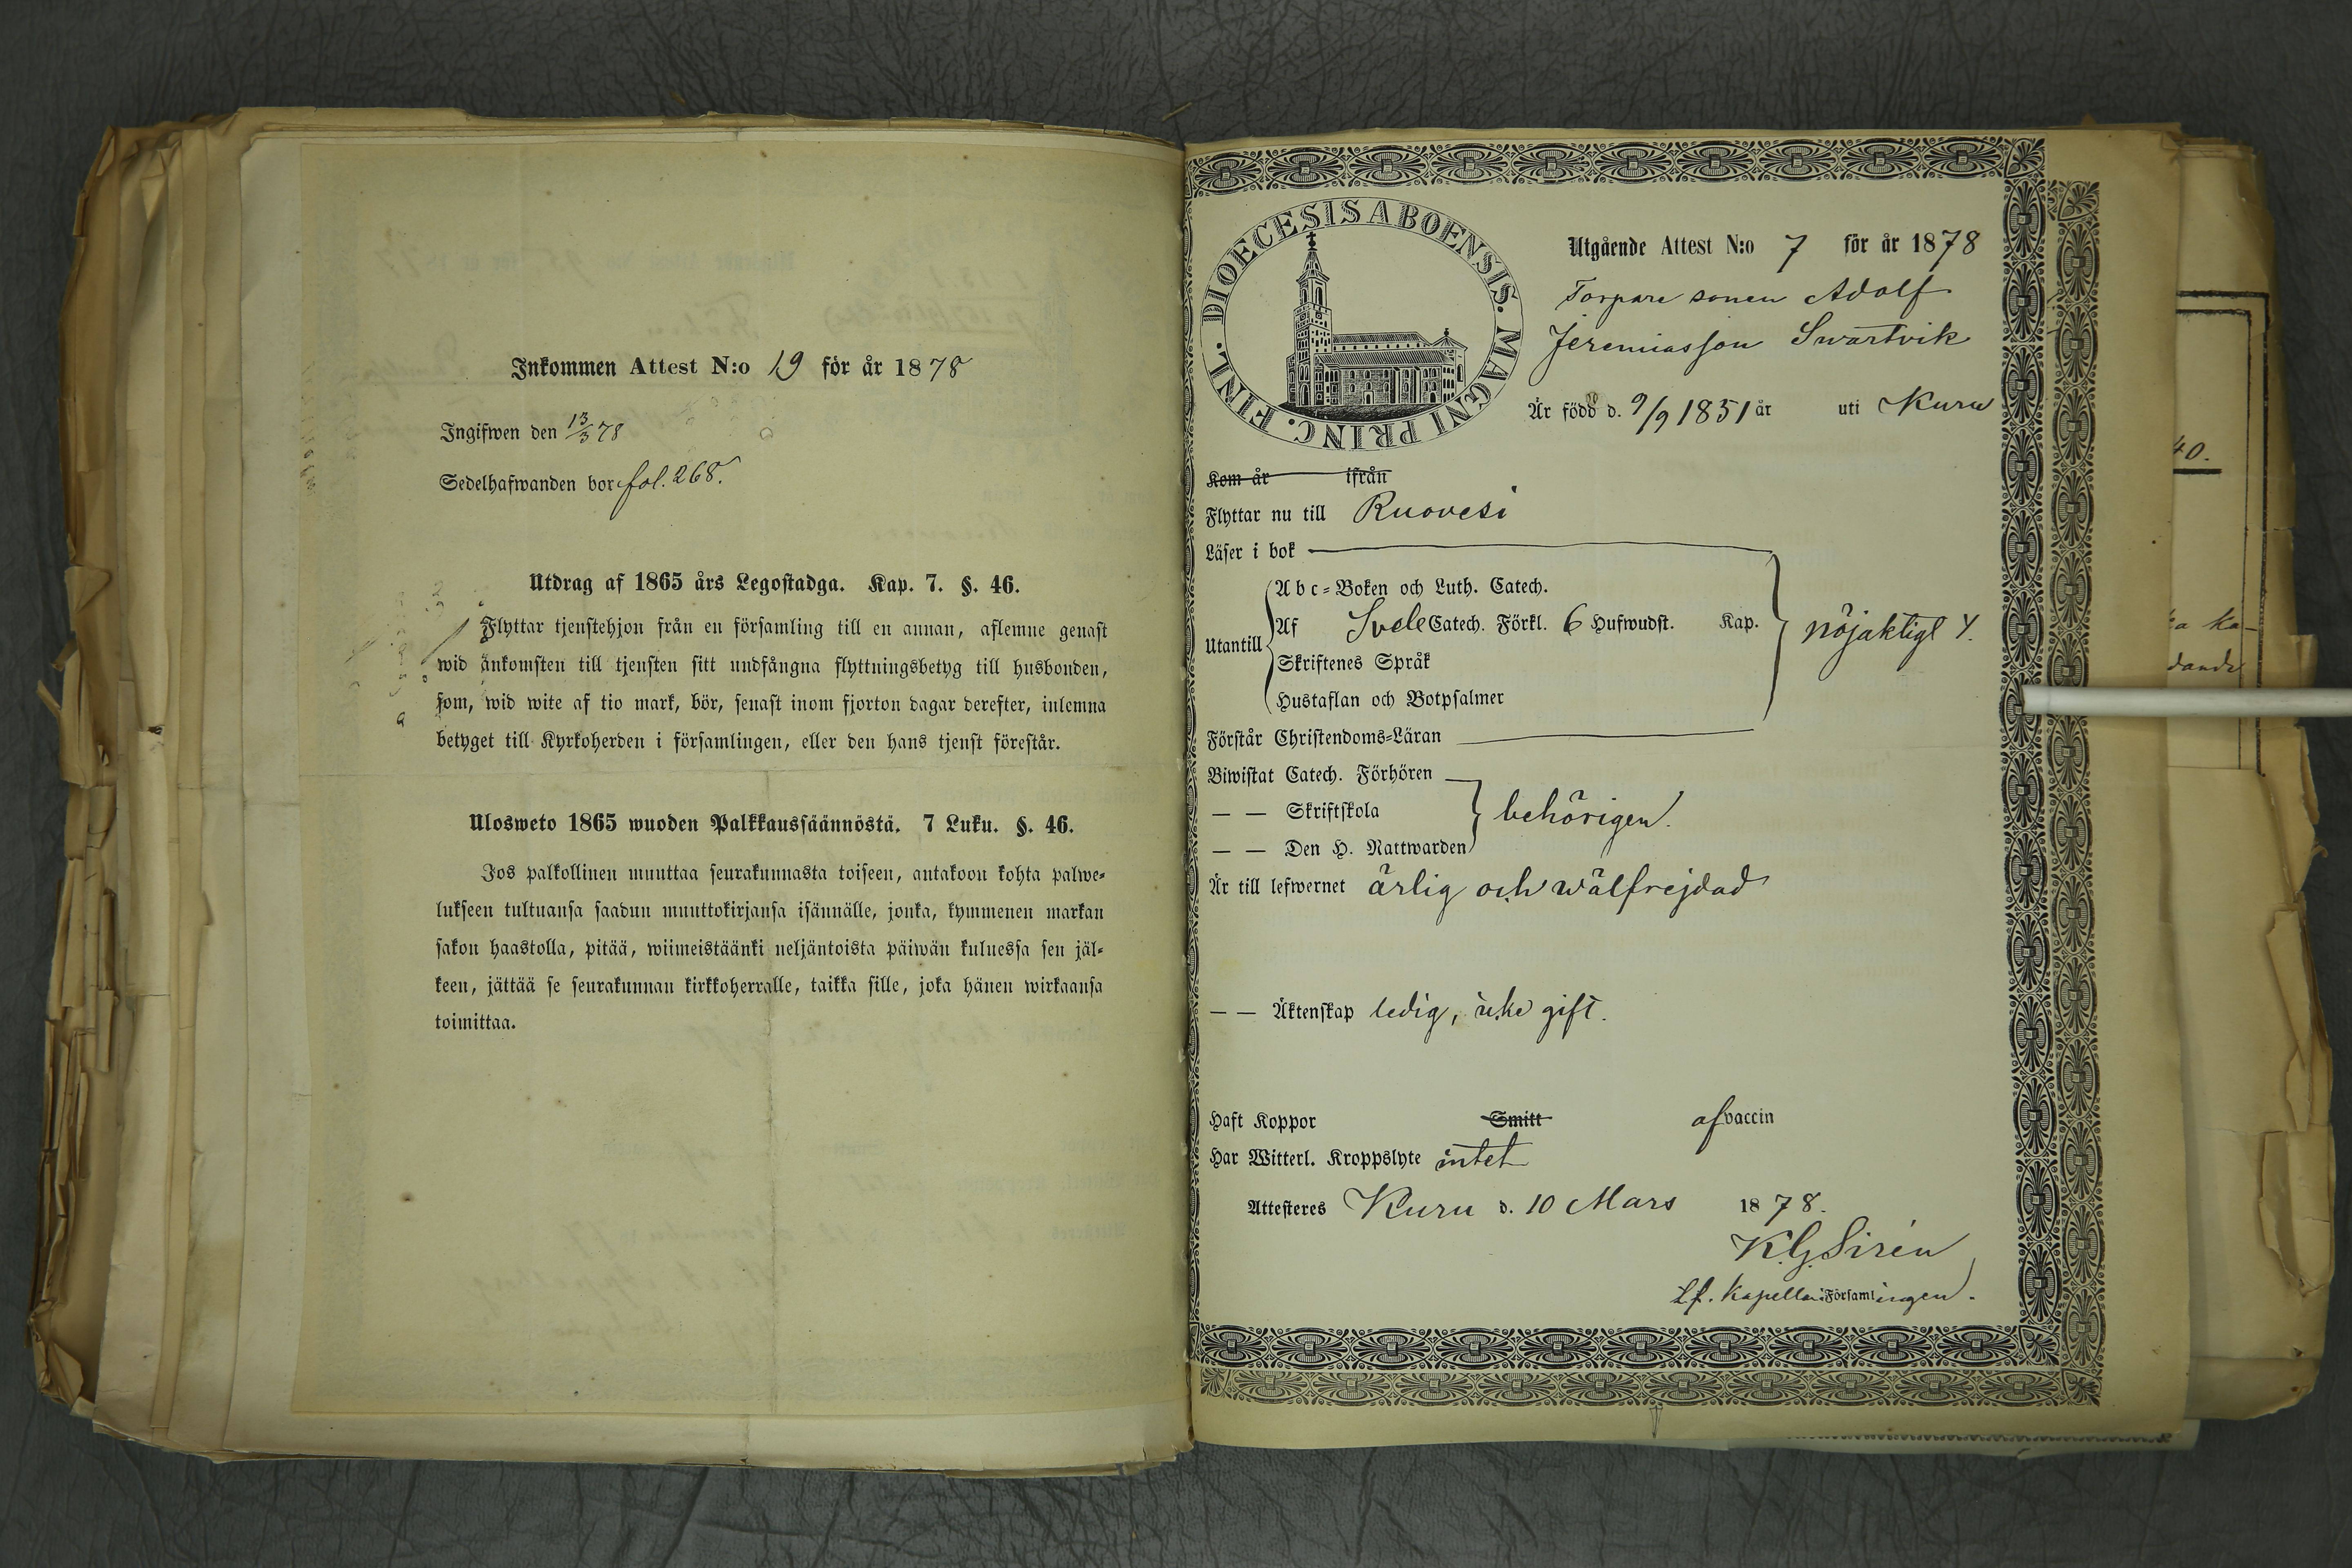 Inkommen Attest N:o 19 för år 1878
Ingifwen den 13/3 78
Sedelhafwanden bor fol. 268.
Utdrag af 1865 års Legostadga. Kap. 7. §. 46.
Flyttar tjenstehjon från en församling till en annan, aflemne genast
wid ankomsten till tjensten sitt undfångna flyttningsbetyg till husbonden,
som, wid wite af tio mark, bör, senast inom fjorton dagar derefter, inlemna
betyget till Kyrkoherden i församlingen, eller den hans tjenst förestår.
Ulosweto 1865 wuoden Palkkaussäännöstä. 7 Luku. §. 46.
Jos palkollinen muuttaa seurakunnasta toiseen, antakoon kohta palwe-
lukseen tultuansa saadun muuttokirjansa isännälle, jonka, kymmenen markan
sakon haastolla, pitää, wiimeistäänki neljäntoista päiwän kuluessa sen jäl-
keen, jättää se seurakunnan kirkkoherralle, taikka sille, joka hänen wirkaansa
toimittaa.
DIOECESIS ABOENSIS. MAGNI PRINC. FINL.
Utgående Attest N:o 7 för år 1878
Torpare sonen Adolf
Jeremiasson Swartvik
Är född d. 9/9 1851 år uti Kuru
Kom år ifrån
Flyttar nu till Ruovesi
Läser i bok
Abc-Boken och Luth. Catech.
Utantill Af Svele Catech. Förkl. 6 Hufwudst. Kap. nöjaktigt
Skriftenes Språk
Hustaflan och Botpsalmer
Förstår Christendoms-Läran
Biwistat Catech. Förhören
— — Skriftskola behörigen.
— — Den H. Nattwarden
Är till lefwernet ärlig och wälfrejdad
— — Äktenskap ledig, icke gift.
Haft Koppor Smitt af vaccin
Har Witterl. Kroppslyte intet
Attesteres Kuru d. 10 Mars 1878.
K. G. Sirén
Kapellan Församlingen.
40.